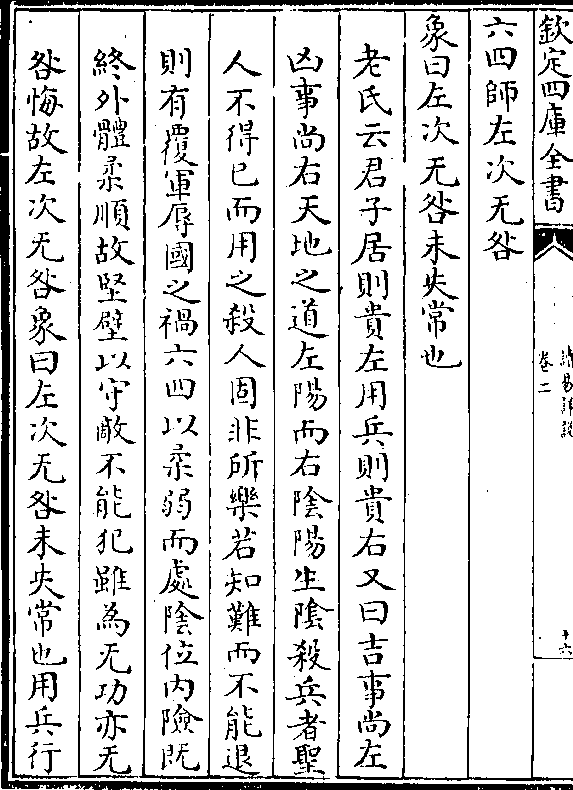 欽定四庫全書
讀易詳說
卷二
十六
六四師左次无咎
象曰左次无咎未失常也
老氏云君子居則貴左用兵則貴右又曰吉事尚左
凶事尚右天地之道左陽而右陰陽生陰殺兵者聖
人不得已而用之殺人固非所樂若知難而不能退
則有覆軍辱國之禍六四以柔弱而處陰位内險既
終外體柔順故堅壁以守敵不能犯雖為无功亦无
咎悔故左次无咎象曰左次无咎未失常也用兵行